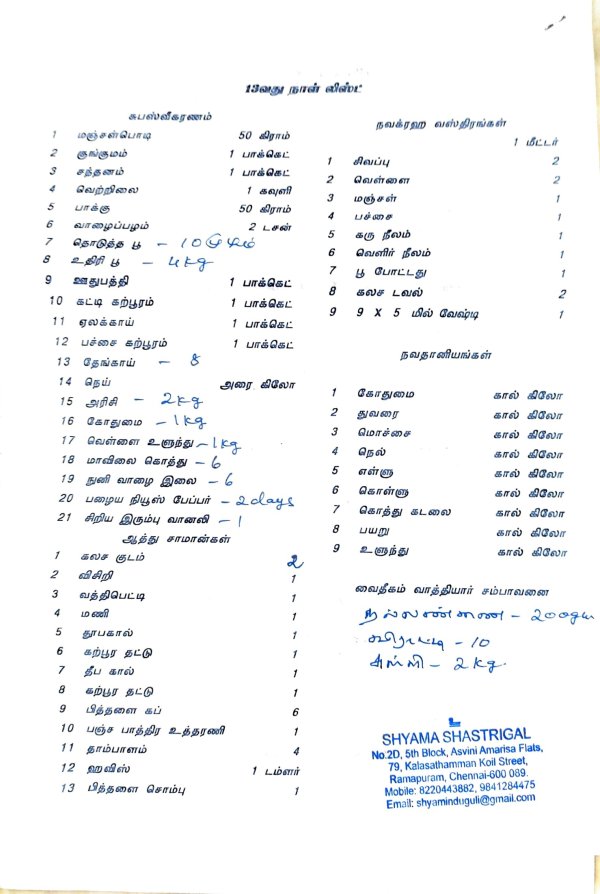 13வது நாள் லிஸ்ட்
சுபஸ்வீகரணம்
1 மஞ்சள்பொடி 50 கிராம்
2 குங்குமம் 1 பாக்கெட்
3 சந்தனம் 1 பாக்கெட்
4 வெற்றிலை 1 கவுளி
5 பாக்கு 50 கிராம்
6 வாழைப்பழம் 2 டசன்
7 தொடுத்த பூ – 10 முழம்
8 உதிரி பூ – 4kg
9 ஊதுபத்தி 1 பாக்கெட்
10 கட்டி கற்பூரம் 1 பாக்கெட்
11 ஏலக்காய் 1 பாக்கெட்
12 பச்சை கற்பூரம் 1 பாக்கெட்
13 தேங்காய் – 8
14 நெய் அரை கிலோ
15 அரிசி – 2kg
16 கோதுமை – 1kg
17 வெள்ளை உளுந்து – 1kg
18 மாவிலை கொத்து – 6
19 நுனி வாழை இலை – 6
20 பழைய நியூஸ் பேப்பர் – 2days
21 சிறிய இரும்பு வானலி – 1
ஆத்து சாமான்கள்
1 கலச குடம் 2
2 விசிறி 1
3 வத்திபெட்டி 1
4 மணி 1
5 தூபகால் 1
6 கற்பூர தட்டு 1
7 தீப கால் 1
8 கற்பூர தட்டு 1
9 பித்தளை கப் 6
10 பஞ்ச பாத்திர உத்தரணி 1
11 தாம்பாளம் 4
12 ஹவிஸ் 1 டம்ளர்
13 பித்தளை சொம்பு 1
நவக்ரஹ வஸ்திரங்கள்
1 மீட்டர்
1 சிவப்பு 2
2 வெள்ளை 2
3 மஞ்சள் 1
4 பச்சை 1
5 கரு நீலம் 1
6 வெளிர் நீலம் 1
7 பூ போட்டது 1
8 கலச டவல் 2
9 9 X 5 மில் வேஷ்டி 1
நவதானியங்கள்
1 கோதுமை கால் கிலோ
2 துவரை கால் கிலோ
3 மொச்சை கால் கிலோ
4 நெல் கால் கிலோ
5 எள்ளு கால் கிலோ
6 கொள்ளு கால் கிலோ
7 கொத்து கடலை கால் கிலோ
8 பயறு கால் கிலோ
9 உளுந்து கால் கிலோ
வைதீகம் வாத்தியார் சம்பாவனை
நல்லண்ணை – 200gm
விராட்டி – 10
சுள்ளி – 2kg.
SHYAMA SHASTRIGAL
No.2D, 5th Block, Asvini Amarisa Flats,
79, Kalasathamman Koil Street,
Ramapuram, Chennai-600 089.
Mobile: 8220443882, 9841284475
Email: shyaminduguli@gmail.com